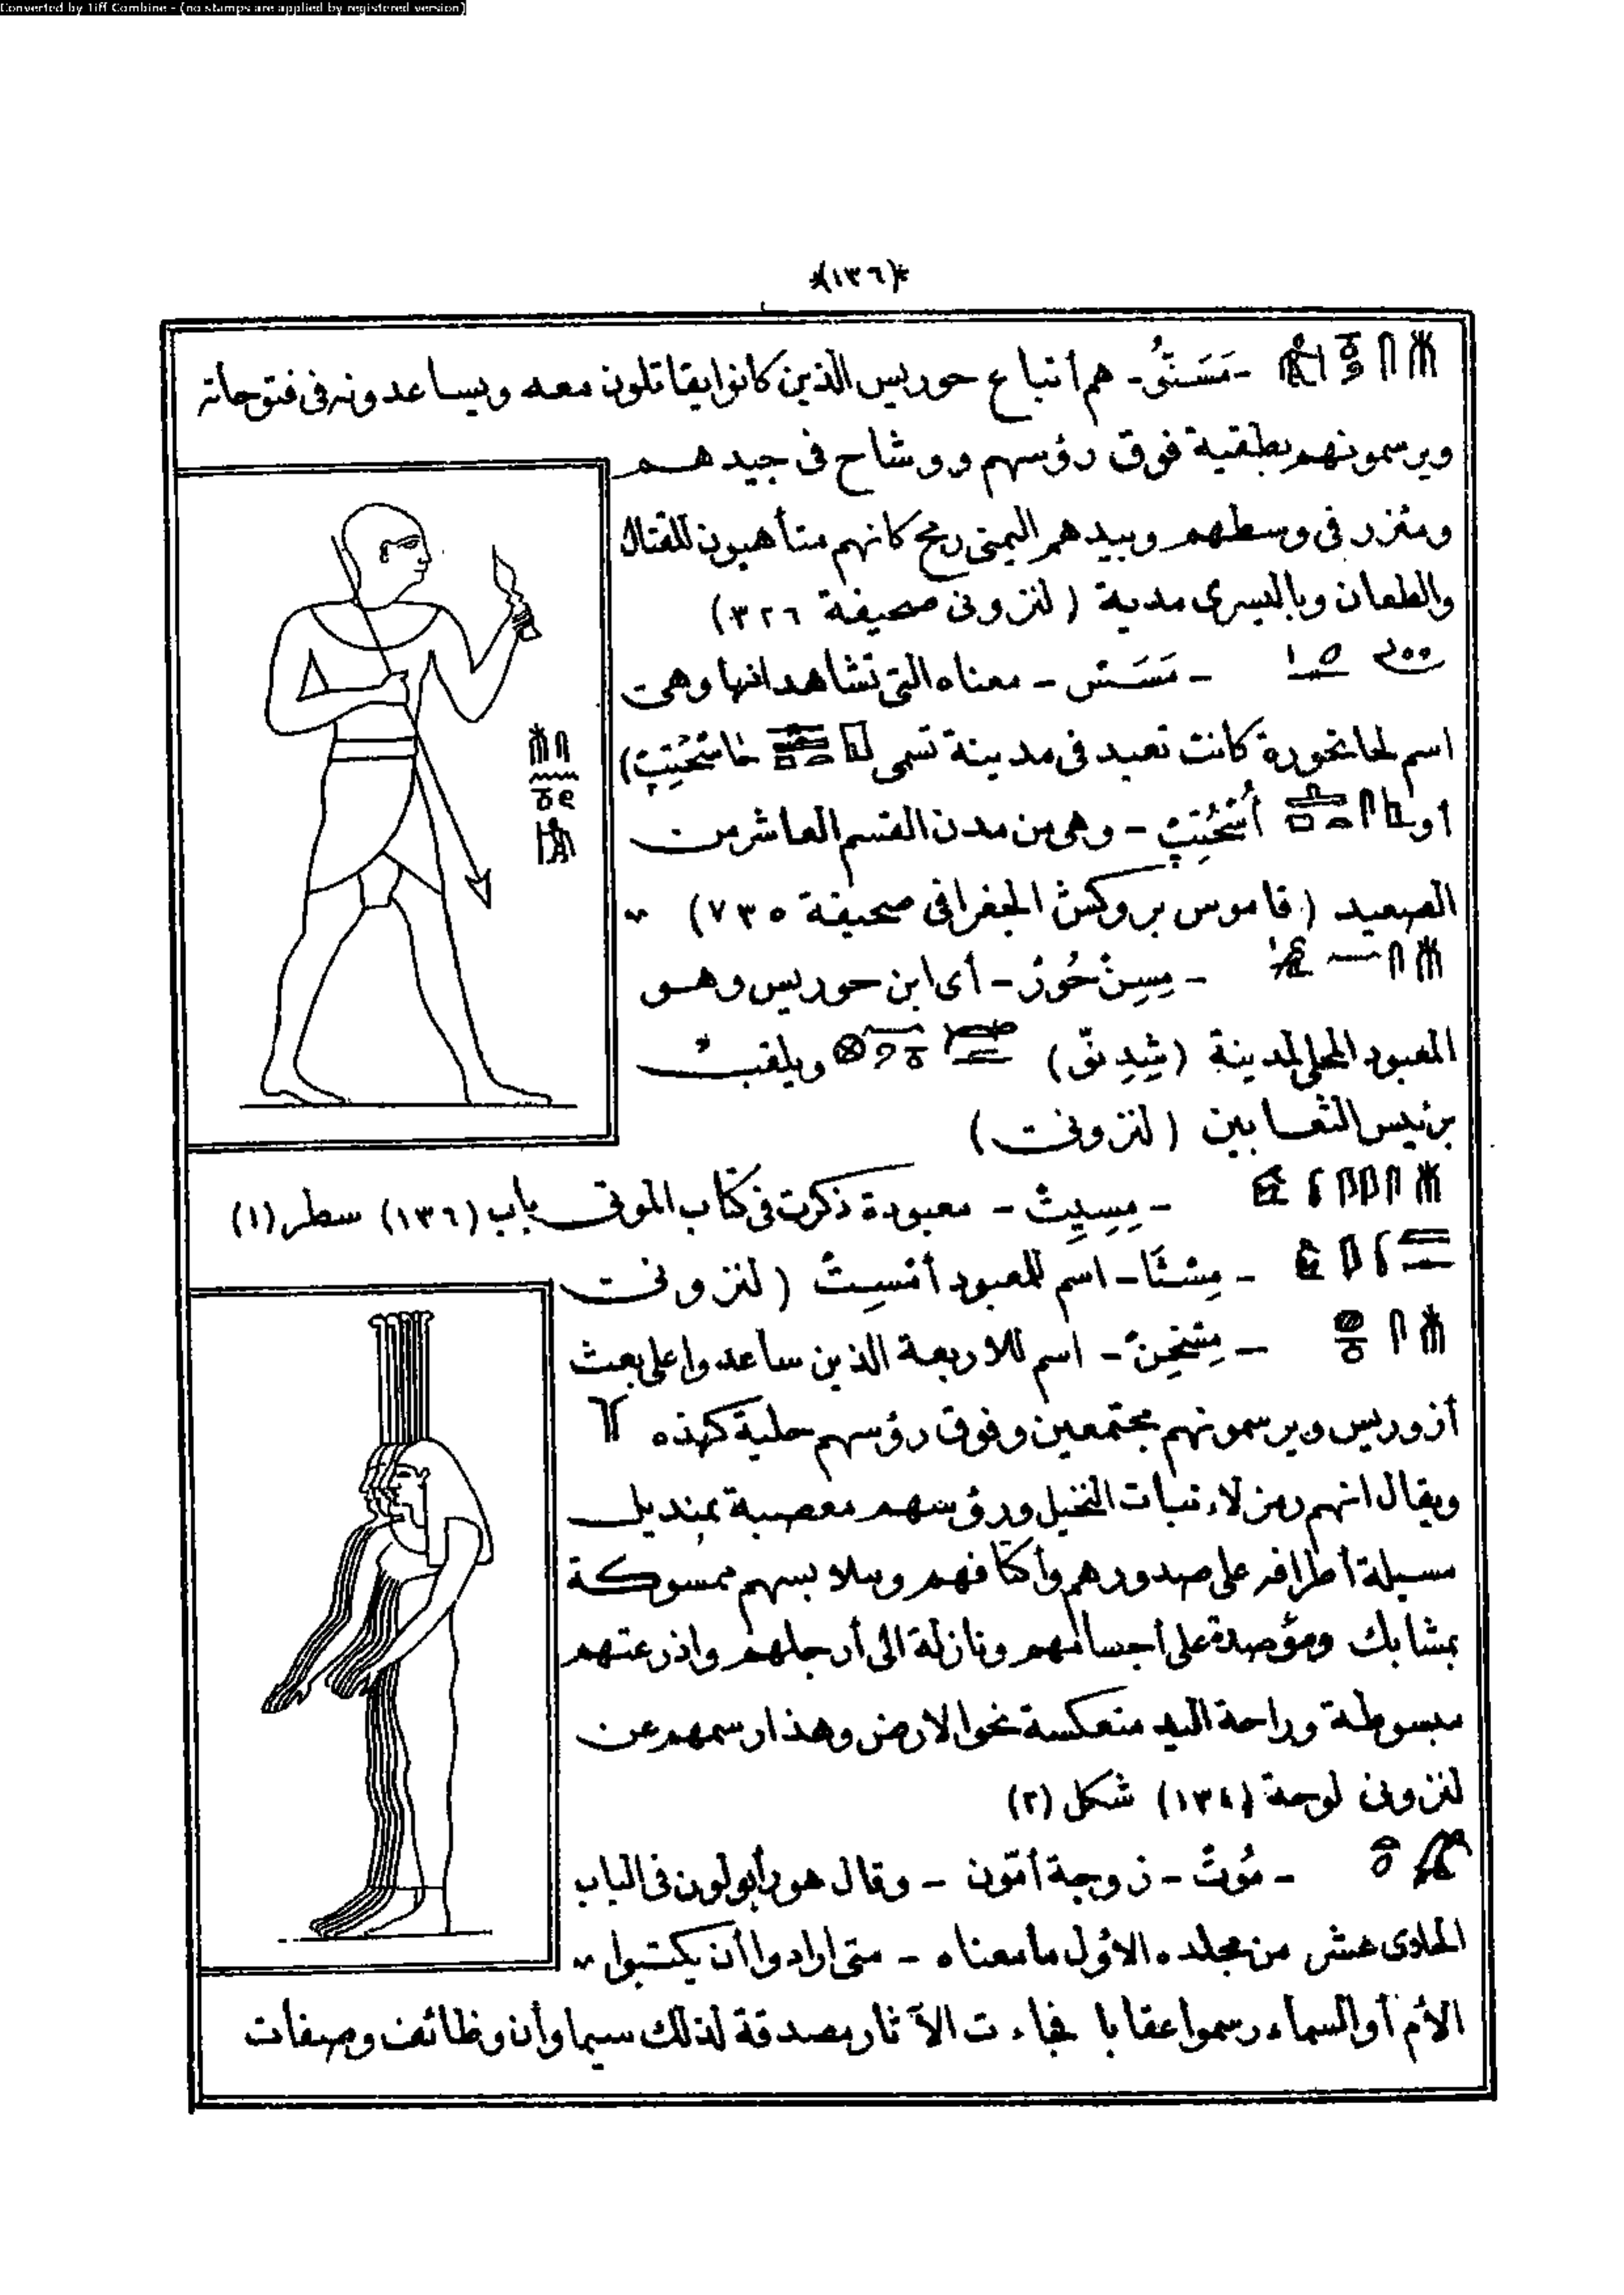 Converted by Tiff Combine - (no stamps are applied by registered version)
*(١٣٦)*
- مَسَنتُى - هم أتباع حوريس الذين كانوا يقاتلون معه ويساعدونه فى فتوحاته
ويرسمونهم بطقية فوق رؤسهم ووشاح فى جيدهم
ومئزر فى وسطهم وبيدهم اليمنى رمح كانهم متأهبون للقتال
والطعان وباليسرى مدية (لنزونى صحيفة ٣٢٦)
- مَسَتس - معناه التى تشاهد ابنها وهى
اسم لحاتحورة كانت تعبد فى مدينة تسمى
أو - وهى من مدن القسم العاشر من
الصعيد (قاموس بروكش الجغرافى صحيفة ٧٣٥)
- مِسِنْ حُورْ - أى ابن حوريس وهو
المعبود المحلى لمدينة ويلقب
برئيس الثعابين (لنزونى)
- مِسِيِتْ - معبودة ذكرت فى كتاب الموتى باب (١٣٦) سطر (١)
- مِسْتَا - اسم للمعبود أمْسِتْ (لنزونى
- مِسْخِنْ - اسم للاربعة الذين ساعدوا على بعث
أزوريس ويرسمونهم مجتمعين وفوق رؤسهم حلية كهذه
ويقال انهم رمز لاء نبات النخيل ورؤسهم معصبة بمنديل
مسبلة أطرافه على صدورهم وأكتافهم وملابسهم ممسوكة
بمشابك ومؤصدة على أجسامهم ونازلة الى أرجلهم واذرعتهم
مبسوطة وراحة اليد منعكسة نحو الارض وهذا رسمهم عن
لنزونى لوحة (١٣٤) شكل (٢)
- مُوتْ - زوجة أمّون - وقال هورأبولون فى الباب
الحادى عشر من مجلده الاوّل مامعناه - متى ارادوا أن يكتبوا
الأم أو السماء رسموا عقابا فجاءت الآثار مصدقة لذلك سيما وأن وظائف وصفات